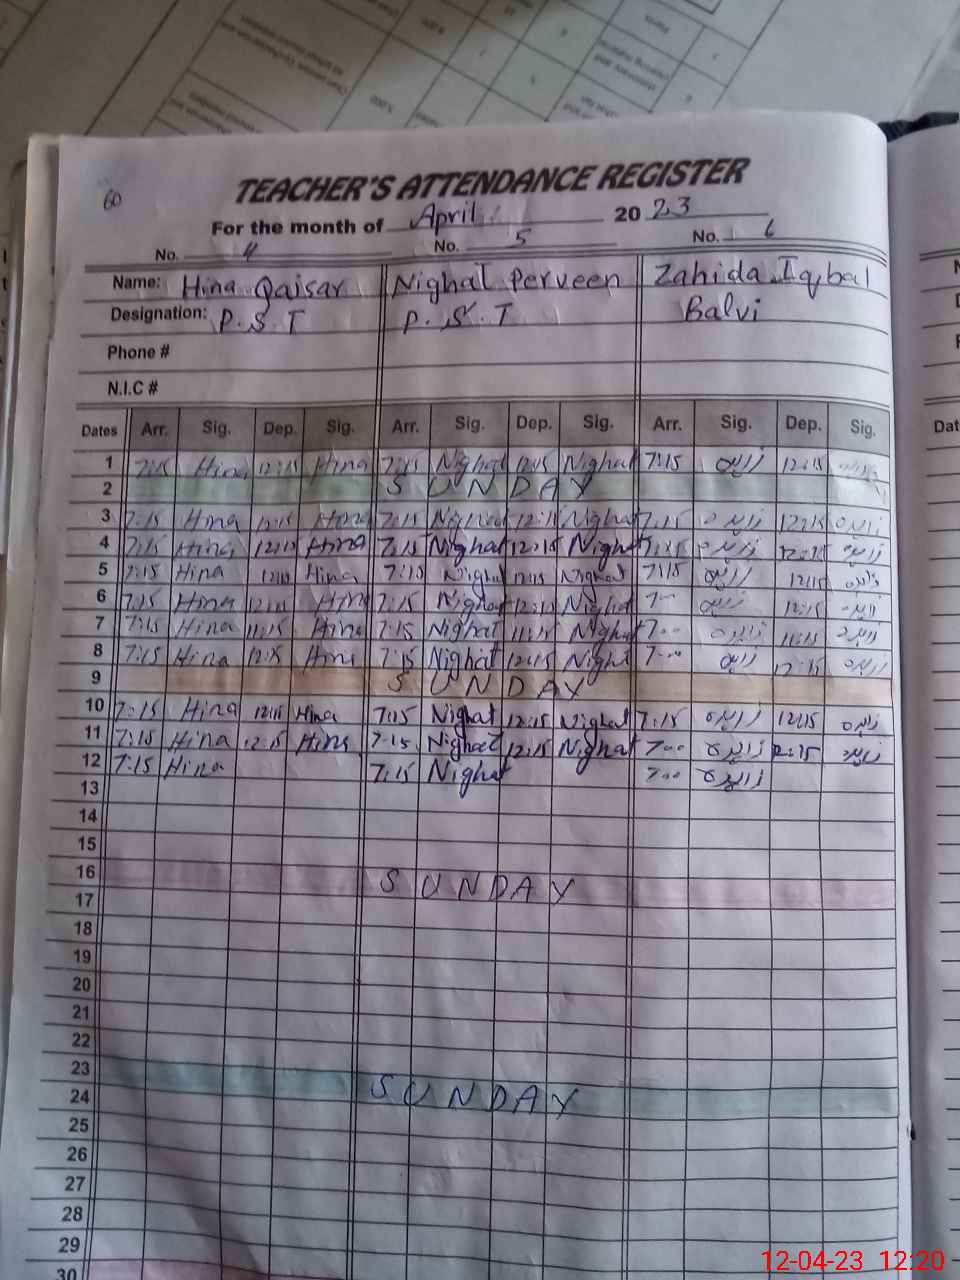 60
TEACHER'S ATTENDANCE REGISTER
For the month of April 2023
No. 4 No. 5 No. 6
Name: Hina Qaisar Nighat Perveen Zahida Iqbal
Designation: P.S.T P.S.T Balvi
Phone #
N.I.C #
Dates Arr. Sig. Dep. Sig. Arr. Sig. Dep. Sig. Arr. Sig. Dep. Sig.
1 7:15 Hina 12:15 Hina 7:15 Nighat 12:15 Nighat 7:15 12:15
2 SUNDAY
3 7:15 Hina 12:15 Hina 7:15 Nighat 12:15 Nighat 7:15 12:15
4 7:15 Hina 12:15 Hina 7:15 Nighat 12:15 Nighat 7:15 12:15
5 7:15 Hina 12:15 Hina 7:15 Nighat 12:15 Nighat 7:15 12:15
6 7:15 Hina 12:15 Hina 7:15 Nighat 12:15 Nighat 7:00 12:15
7 7:15 Hina 11:15 Hina 7:15 Nighat 11:15 Nighat 7:00 11:15
8 7:15 Hina 12:15 Hina 7:15 Nighat 12:15 Nighat 7:00 12:15
9 SUNDAY
10 7:15 Hina 12:15 Hina 7:15 Nighat 12:15 Nighat 7:15 12:15
11 7:15 Hina 12:15 Hina 7:15 Nighat 12:15 Nighat 7:00 12:15
12 7:15 Hina 7:15 Nighat 7:00
13
14
15
16 SUNDAY
17
18
19
20
21
22
23 SUNDAY
24
25
26
27
28
29
30
12-04-23 12:20